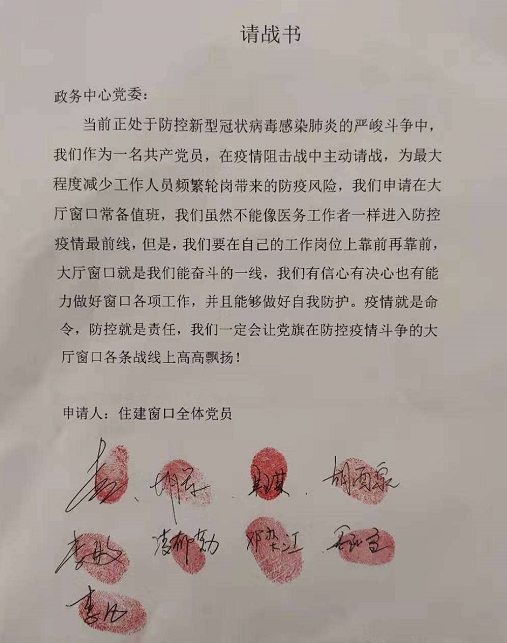 请战书
政务中心党委：
当前正处于防控新型冠状病毒感染肺炎的严峻斗争中，
我们作为一名共产党员，在疫情阻击战中主动请战，为最大
程度减少工作人员频繁轮岗带来的防疫风险，我们申请在大
厅窗口常备值班，我们虽然不能像医务工作者一样进入防控
疫情最前线，但是，我们要在自己的工作岗位上靠前再靠前，
大厅窗口就是我们能奋斗的一线，我们有信心有决心也有能
力做好窗口各项工作，并且能够做好自我防护。疫情就是命
令，防控就是责任，我们一定会让党旗在防控疫情斗争的大
厅窗口各条战线上高高飘扬！
申请人：住建窗口全体党员